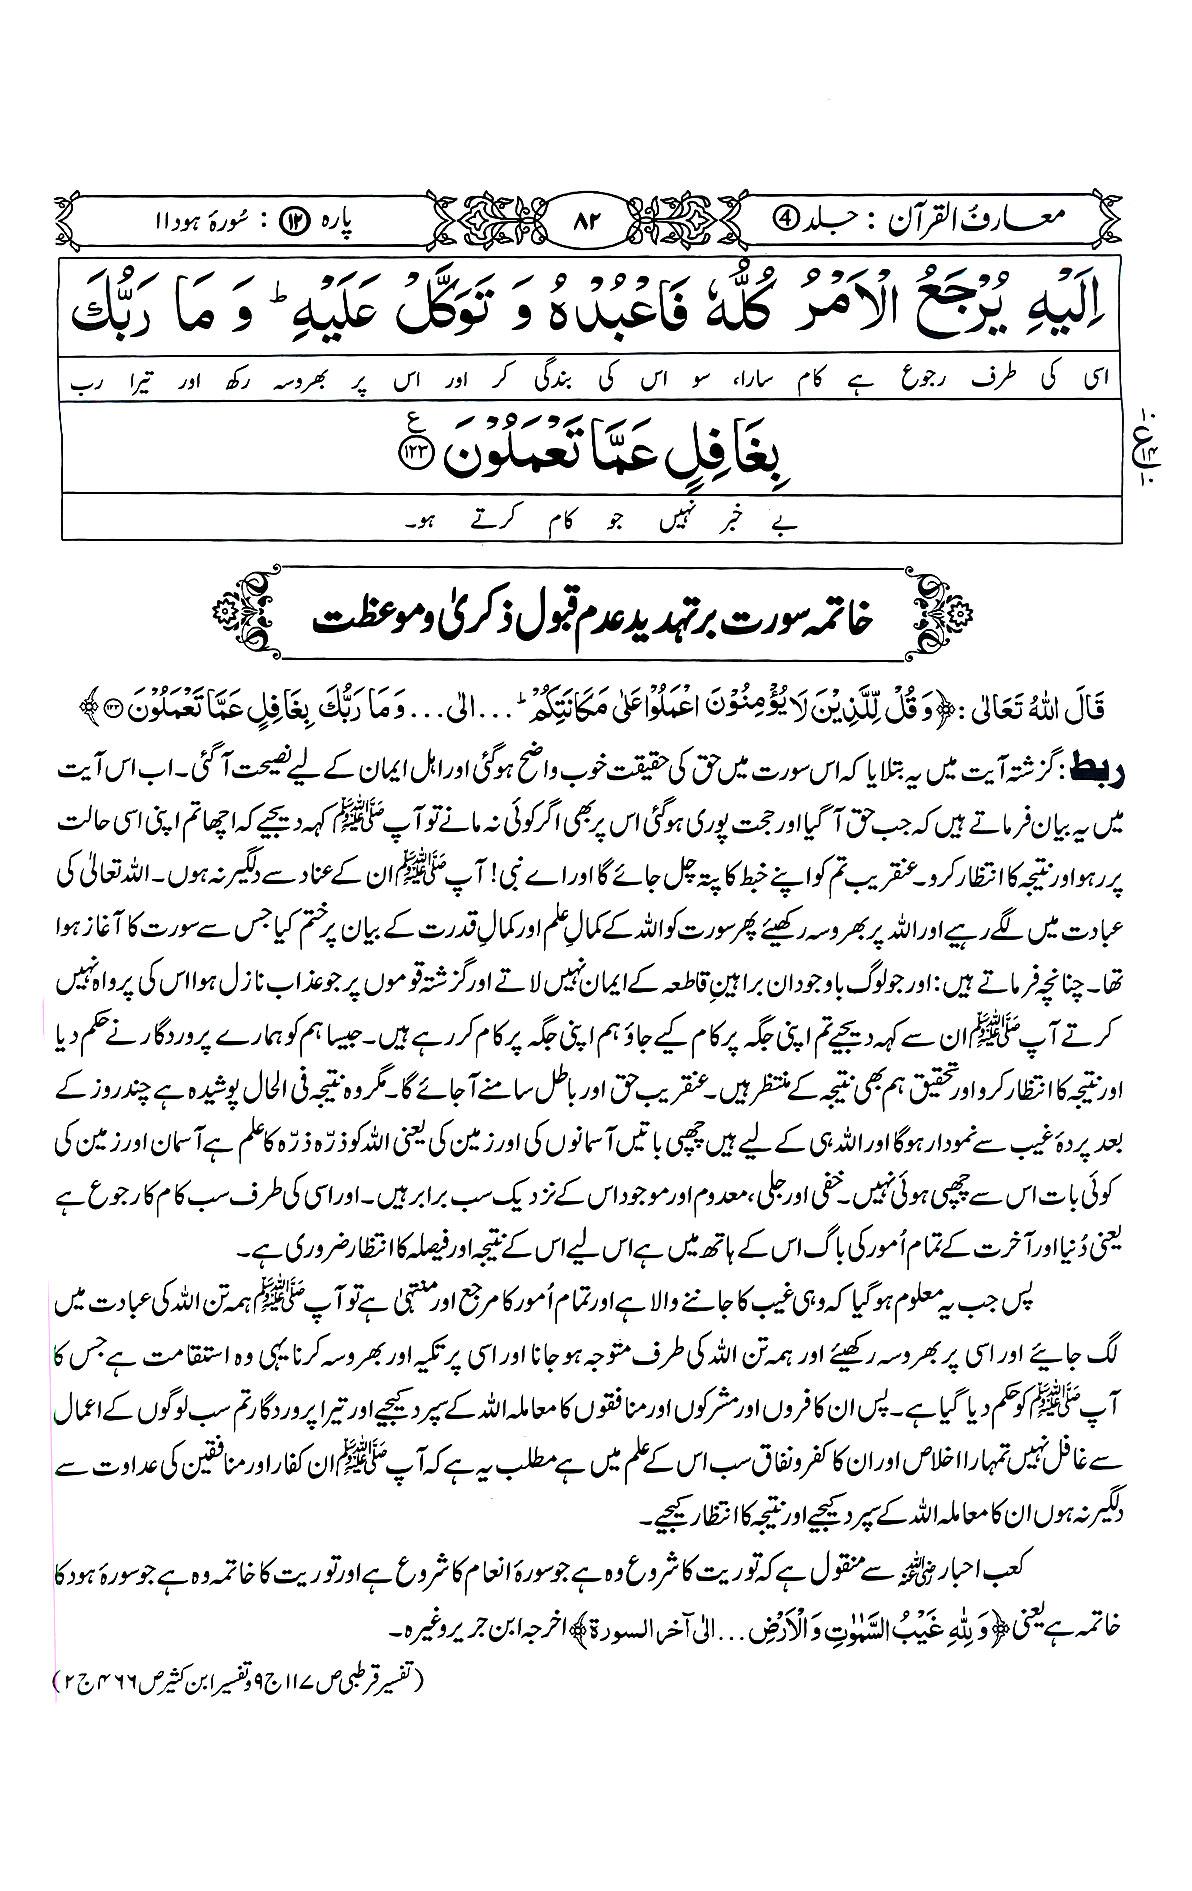 معارف القرآن : جلد ④
۸۲
پارہ ⑫ : سُورۂ ہود ۱۱
اِلَيْهِ يُرْجَعُ الْاَمْرُ كُلُّهٗ فَاعْبُدْهُ وَ تَوَكَّلْ عَلَيْهِ ؕ وَ مَا رَبُّكَ
اسی کی طرف رجوع ہے کام سارا، سو اس کی بندگی کر اور اس پر بھروسہ رکھ اور تیرا رب
بِغَافِلٍ عَمَّا تَعْمَلُوْنَ ﴿۱۲۳﴾ ع
۱۰ ع ۱۴ ۱۰
بے خبر نہیں جو کام کرتے ہو۔
خاتمہ سورت بر تہدید عدم قبول ذکریٰ و موعظت
قَالَ اللهُ تَعَالٰی : ﴿وَ قُلْ لِّلَّذِيْنَ لَا يُؤْمِنُوْنَ اعْمَلُوْا عَلٰى مَكَانَتِكُمْ ؕ ... الٰی ... وَ مَا رَبُّكَ بِغَافِلٍ عَمَّا تَعْمَلُوْنَ ۱۲۳﴾
ربط : گزشتہ آیت میں یہ بتلایا کہ اس سورت میں حق کی حقیقت خوب واضح ہوگئی اور اہل ایمان کے لیے نصیحت آ گئی۔ اب اس آیت
میں یہ بیان فرماتے ہیں کہ جب حق آ گیا اور حجت پوری ہوگئی اس پر بھی اگر کوئی نہ مانے تو آپ ﷺ کہہ دیجیے کہ اچھا تم اپنی اسی حالت
پر رہو اور نتیجہ کا انتظار کرو۔ عنقریب تم کو اپنے خبط کا پتہ چل جائے گا اور اے نبی! آپ ﷺ ان کے عناد سے دلگیر نہ ہوں۔ اللہ تعالیٰ کی
عبادت میں لگے رہیے اور اللہ پر بھروسہ رکھیئے پھر سورت کو اللہ کے کمالِ علم اور کمالِ قدرت کے بیان پر ختم کیا جس سے سورت کا آغاز ہوا
تھا۔ چنانچہ فرماتے ہیں : اور جو لوگ باوجود ان براہینِ قاطعہ کے ایمان نہیں لاتے اور گزشتہ قوموں پر جو عذاب نازل ہوا اس کی پرواہ نہیں
کرتے آپ ﷺ ان سے کہہ دیجیے تم اپنی جگہ پر کام کیے جاؤ ہم اپنی جگہ پر کام کر رہے ہیں۔ جیسا ہم کو ہمارے پروردگار نے حکم دیا
اور نتیجہ کا انتظار کرو اور تحقیق ہم بھی نتیجہ کے منتظر ہیں۔ عنقریب حق اور باطل سامنے آ جائے گا۔ مگر وہ نتیجہ فی الحال پوشیدہ ہے چند روز کے
بعد پردۂ غیب سے نمودار ہوگا اور اللہ ہی کے لیے ہیں چھپی باتیں آسمانوں کی اور زمین کی یعنی اللہ کو ذرّہ ذرّہ کا علم ہے آسمان اور زمین کی
کوئی بات اس سے چھپی ہوئی نہیں۔ خفی اور جلی ، معدوم اور موجود اس کے نزدیک سب برابر ہیں۔ اور اسی کی طرف سب کام کا رجوع ہے
یعنی دُنیا اور آخرت کے تمام اُمور کی باگ اس کے ہاتھ میں ہے اس لیے اس کے نتیجہ اور فیصلہ کا انتظار ضروری ہے۔
پس جب یہ معلوم ہوگیا کہ وہی غیب کا جاننے والا ہے اور تمام اُمور کا مرجع اور منتہیٰ ہے تو آپ ﷺ ہمہ تن اللہ کی عبادت میں
لگ جایئے اور اسی پر بھروسہ رکھیئے اور ہمہ تن اللہ کی طرف متوجہ ہو جانا اور اسی پر تکیہ اور بھروسہ کرنا یہی وہ استقامت ہے جس کا
آپ ﷺ کو حکم دیا گیا ہے۔ پس ان کافروں اور مشرکوں اور منافقوں کا معاملہ اللہ کے سپرد کیجیے اور تیرا پروردگار تم سب لوگوں کے اعمال
سے غافل نہیں تمہارا اخلاص اور ان کا کفر و نفاق سب اس کے علم میں ہے مطلب یہ ہے کہ آپ ﷺ ان کفار اور منافقین کی عداوت سے
دلگیر نہ ہوں ان کا معاملہ اللہ کے سپرد کیجیے اور نتیجہ کا انتظار کیجیے۔
کعب احبار رضی اللہ عنہ سے منقول ہے کہ توریت کا شروع وہ ہے جو سورۂ انعام کا شروع ہے اور توریت کا خاتمہ وہ ہے جو سورۂ ہود کا
خاتمہ ہے یعنی ﴿وَ لِلّٰهِ غَيْبُ السَّمٰوٰتِ وَ الْاَرْضِ ... الی آخر السورة﴾ اخرجہ ابن جریر وغیرہ۔
(تفسیر قرطبی ص ۱۱۷ ج ۹ و تفسیر ابن کثیر ص ۴۶۶ ج ۲)